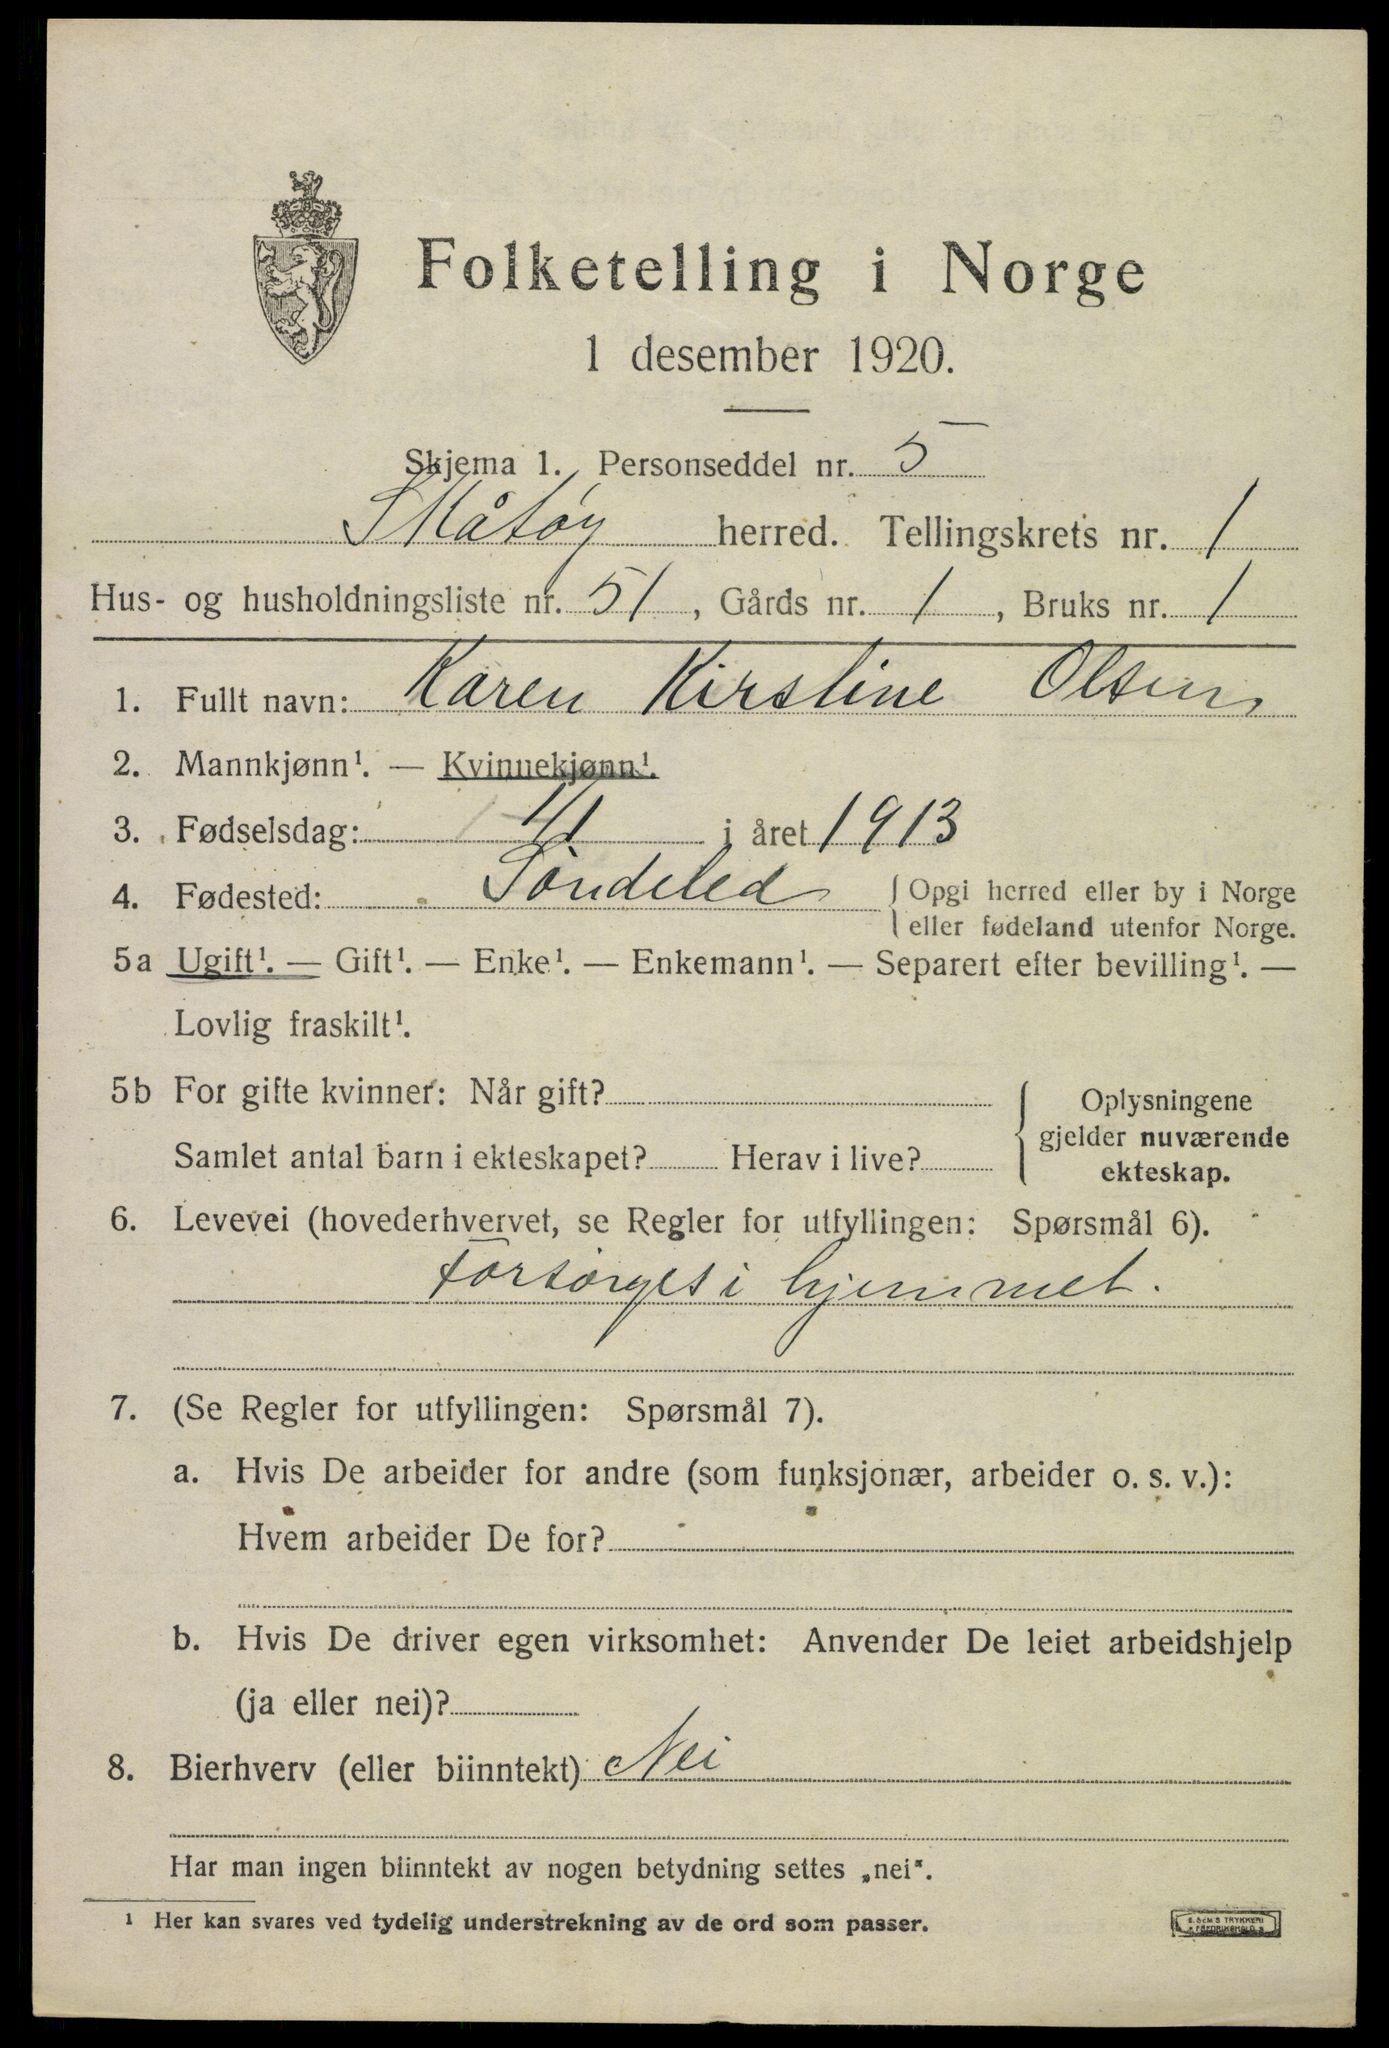 Folketelling i Norge
1 desember 1920.
Skjema 1. Personseddel nr. 5
Skåtøy herred. Tellingskrets nr. 1
Hus- og husholdningsliste nr. 51, Gårds nr. 1, Bruks nr. 1
1. Fullt navn: Karen Kirstine Olsen
2. Mannkjønn¹. — Kvinnekjønn¹.
3. Fødselsdag: i året 1913
4. Fødested: Söndeled { Opgi herred eller by i Norge
eller fødeland utenfor Norge.
5a Ugift¹. — Gift¹. — Enke¹. — Enkemann¹. — Separert efter bevilling¹. —
Lovlig fraskilt¹.
5b For gifte kvinner: Når gift? { Oplysningene
gjelder nuværende
Samlet antal barn i ekteskapet? Herav i live?
ekteskap.
6. Levevei (hovederhvervet, se Regler for utfyllingen: Spørsmål 6).
Forsörges i hjemmet.
7. (Se Regler for utfyllingen: Spørsmål 7).
a. Hvis De arbeider for andre (som funksjonær, arbeider o. s. v.):
Hvem arbeider De for?
b. Hvis De driver egen virksomhet: Anvender De leiet arbeidshjelp
(ja eller nei)?
8. Bierhverv (eller biinntekt) Nei
Har man ingen biinntekt av nogen betydning settes „nei“.
¹ Her kan svares ved tydelig understrekning av de ord som passer.